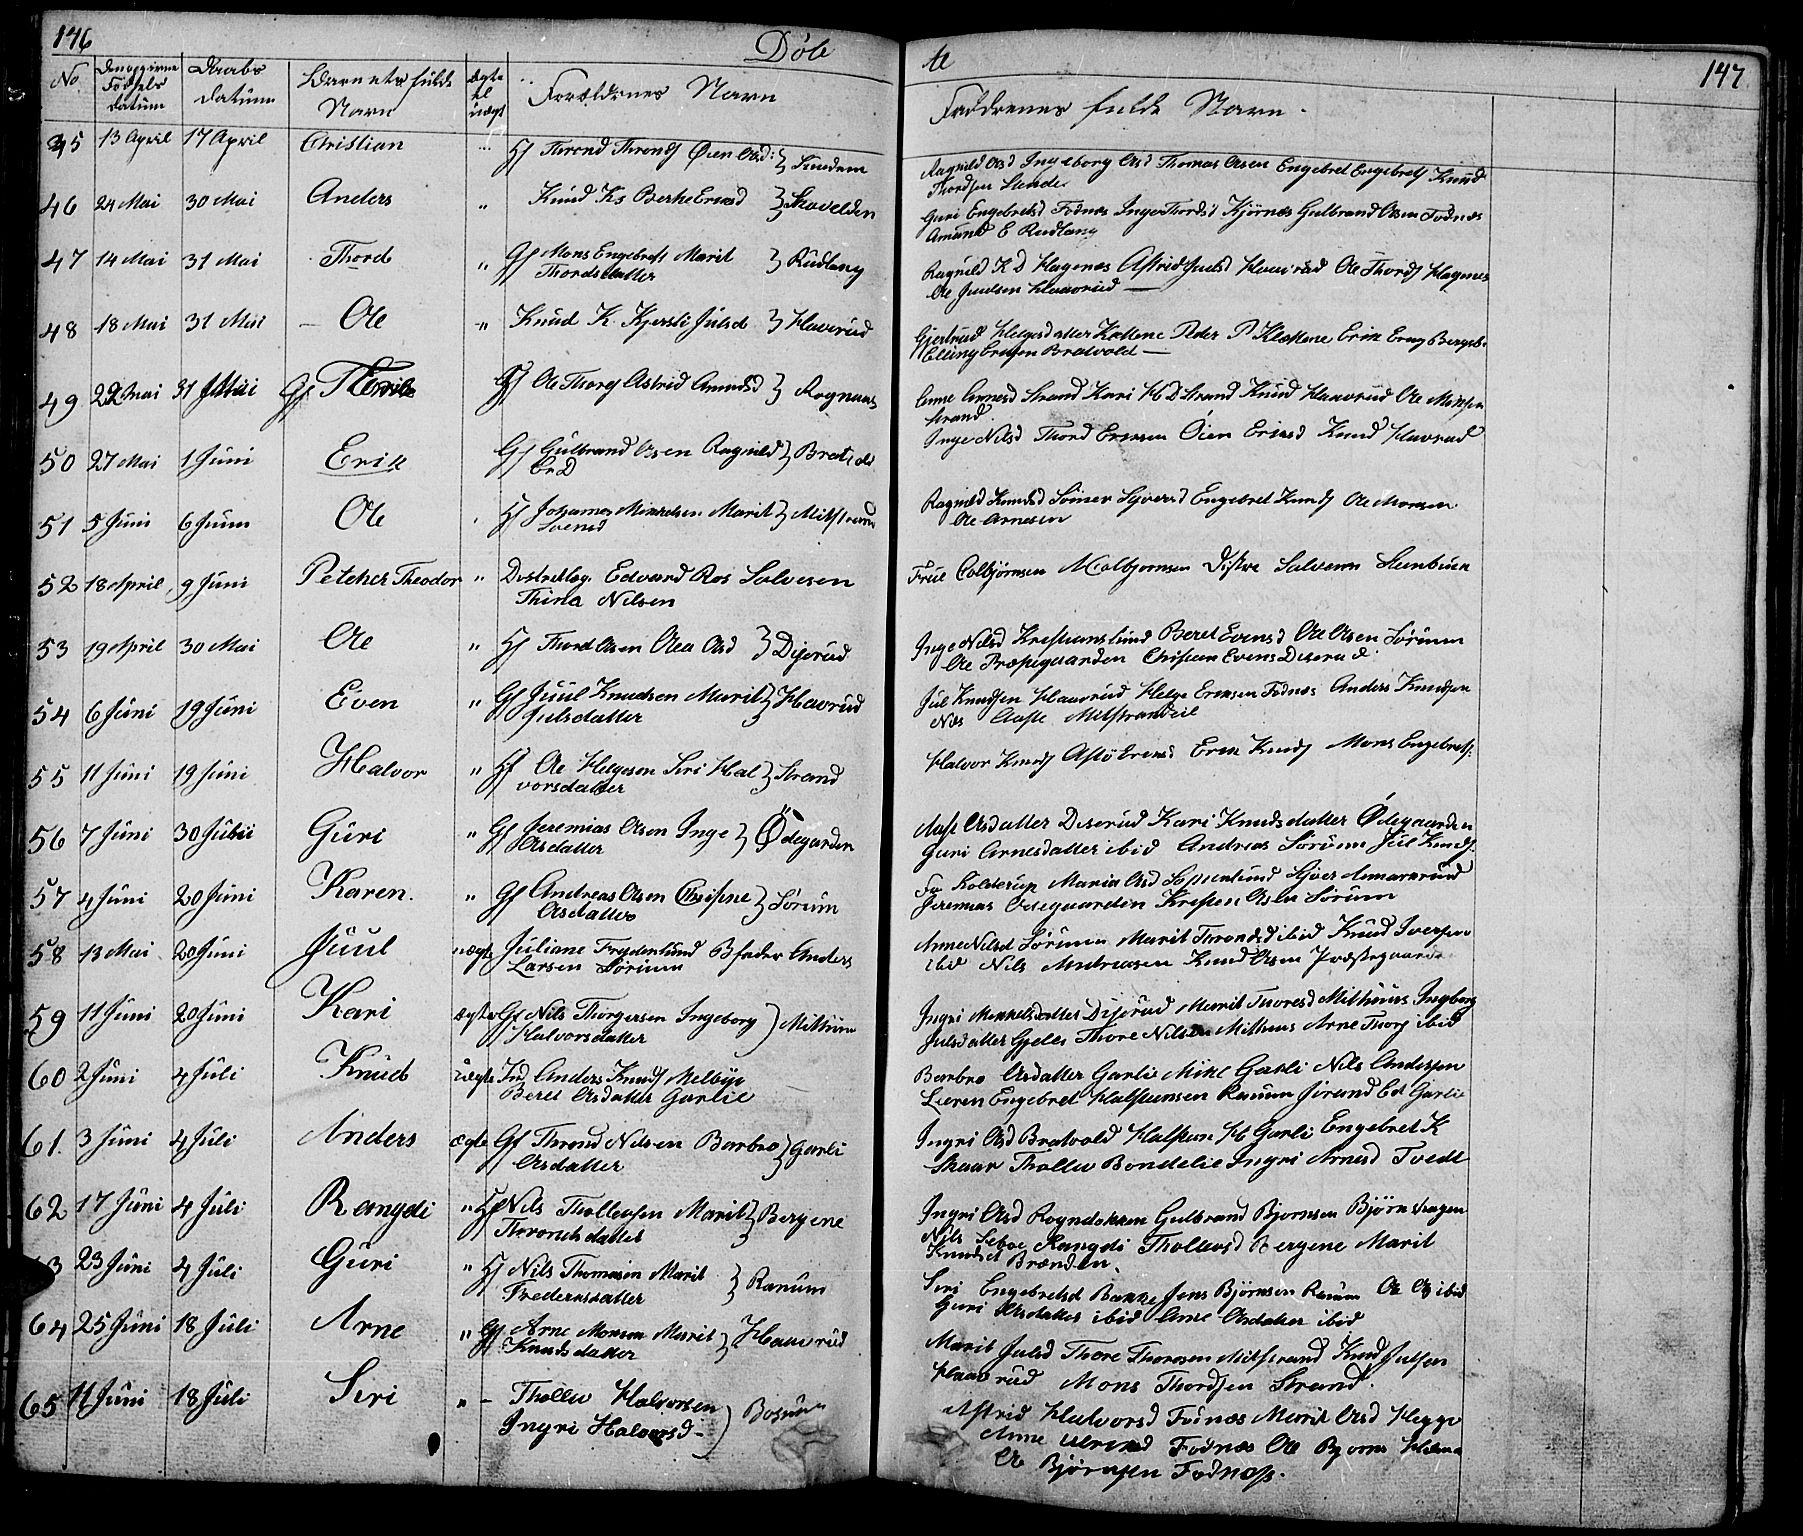 146
Døb
te
147
No
Fødsels datum
Daabs datum
Barnets fulde Navn
Ægte el uægt
Forældrenes Navn
Faddrenes fulde Navn
45 13 April 17 April Christian Hf Thrond Throndf Øien Olsd: } Sundem
Ragnild Olsd Ingeborg Olsd Thomas Olsen Engebret Engebretf Knud
Thordsen Sunde
46 24 Mai 30 Mai Anders " Knud Ks Berthe Eriksd } Skavelden
Guri Engebretsd Fodnæs Inger Thordsd Kjørnæs Gulbrand Olsen Fodnæs
Amund E Rudlang
47 14 Mai 31 Mai Thord " Gf Mons Engebretf Marit } Rudlang
Thordsdatter
Ragnild K D Hagenæs Astrid Juulsd Haavrud Ole Thordf Hagenæs
Ole Juulsen Haavrud
48 18 Mai 31 Mai Ole " Knud K. Kjersti Julsd } Haverud
Gjertrud Helgesdatter Klattene Peder P Klattene Erik
Elling Eriksen Bratvold
49 22 Mai 31 Mai Gf Ole Thoref Astrid Amundsd } Rognaas
Anne Arnesd Strand Kari H D Strand Knud Haavrud Ole
Strand
50 27 Mai 1 Juni Erik Gf Gulbrand Olsen Ragnild } Bratvold
Er D
Inge Nilsd Thord Eriksen Øien Eriksd Knud Havrud
51 5 Juni 6 Juni Ole Hf Johannes Mikkelsen Marit } Mitstrand
Svensd
Ragnild Knudsd Sømer Syversd Engebret Knudf Ole Monsen
Ole Arnesen
52 18 April 9 Juni Petcher Theodor " Distrktlæg. Edvard Ros Salvesen
Thina Nilsen
Frue Colbjørnsen M Colbjornsen Distre Salvesen Steenbuen
53 19 April 30 Mai Ole " Hf Thord Olsen Olea Olsd } Diserud
Inge Nilsd Kristianslund Beret Evensd Ole Olsen Sørum
Ole Præstegaarden Christian Evens Diserud
54 6 Juni 19 Juni Even " Gf Juul Knudsen Marit } Havrud
Julsdatter
Jul Knudsen Haavrud Helge Eriksen Fodnæs Anders Knudsen
Næs Aaste Mitstrandeie
55 11 Juni 19 Juni Halvor " Hf Ole Helgesen Siri Hal } Strand
vorsdatter
Halvor Knudf Aste Eriksd Erik Knudf Mons Engebretf
56 7 Juni 30 Juni Guri " Gf Jeremias Olsen Inge } Ødegarden
Olsdatter
Aase Olsdatter Diserud Kari Knudsdatter Ødegaarden
Guri Arnesdatter ibid Andreas Sørum Jul Knudf
57 4 Juni 20 Juni Karen. " Gf Andreas Olsen Christine } Sørum
Olsdatter
Fr Kolderup Maria Olsd Sophienlund Syver
Jeremias Ødegaarden Kristen Oslen Sørum
58 13 Mai 20 Juni Juul uægte Juliane Frydenlund Bfader Anders
Larsen Sørum
Anne Nilsd Sørum Marit Throndsd ibid Knud Iversen
ibid Nils Andreasen Knud Olsen Præstegaarden
59 11 Juni 20 Juni Kari ægte Gf Nils Thorgersen Ingeborg } Mithuus
Halvorsdatter
Ingri Mikkelsdatter Diserud Marit Thoresd Mithuus Ingborg
Julsdatter Gjelle Thore Nilsen Mithuus Arne Thorf ibid
60 2 Juni 4 Juli Knud uægte Ind. Anders Knudf Melbye
Beret Olsdatter Garlie
Barbro Olsdatter Garlie Mikl Garli Nils Andersen
Lieren Engebret Halstensen Ranum Jorand Ed Garlie
61. 3 Juni 4 Juli Anders ægte Gf Thrond Nilsen Barbro } Garli
Olsdatter
Ingri Olsd Bratvold Halsten H Garli Engebret K
Skaar Thollev Bondelie Ingri Arnesd Tvedt
62 17 Juni 4 Juli Rangdi " Hf Nils Thollefsen Marit } Bergene
Throndsdatter
Ingri Olsd Rogndokken Gulbrand Bjornsen Bjørnhagen
Nils Seboe Rangdi Thollevsd Bergene Marit
Knudsd Brænden
3 23 Juni 4 Juli Guri " Hf Nils Thomesen Marit } Ranum
Frederiksdatter
Siri Engebretsd Bakke Jens Bjørnsen Ranum Ole Olsf ibid
Guri Olsdatter ibid Anne Olsdatter ibid
64 25 Juni 18 Juli Arne " Gf Arne Monsen Marit } Haavrud
Knudsdatter
Marit Julsd Thore Thoresen Mitstrand Knud Julsen
Haavrud Mons Thordsen Strand.
65 11 Juni 18 Juli Siri " - Thollev Halvorsen
Ingri Halvorsd }
Astrid Halvorsd Fodnæs Marit Olsd Hegge
Anne Fodnæs Ole Bjorn
Ole Bjørnsen Fodnæss.